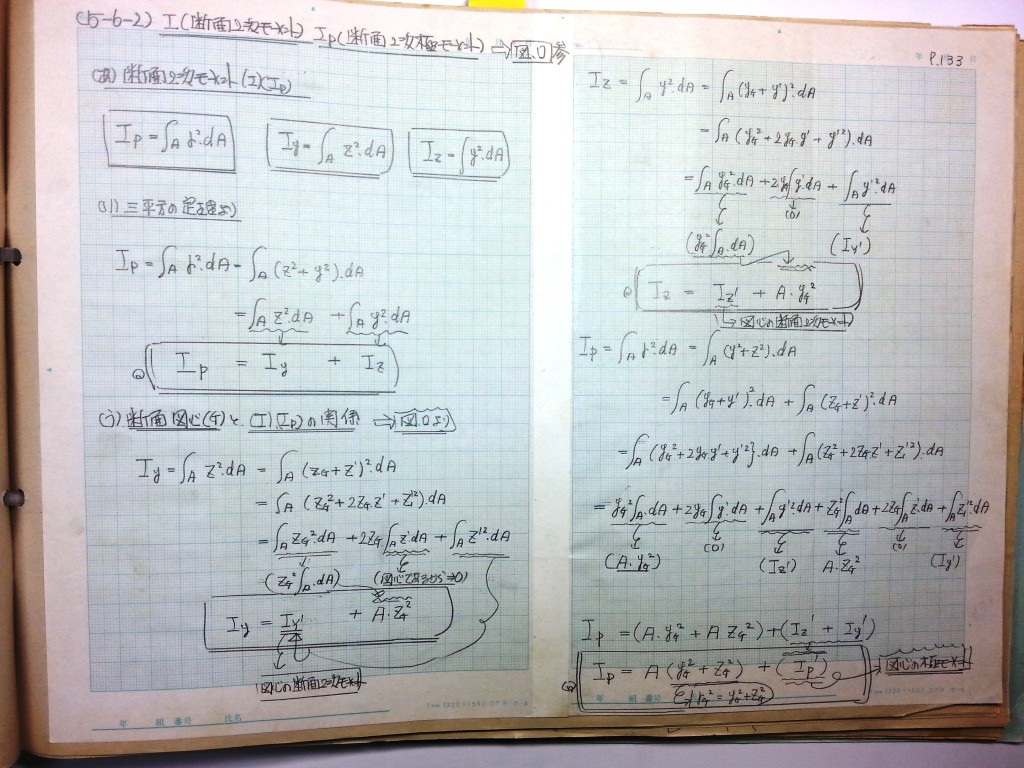 (5-6-2) I(断面2次モーメント) Ip(断面2次極モーメント) ⇒ 図.0 参
(あ) 断面2次モーメント(I)(Ip)
Ip = ∫A ρ².dA Iy = ∫A z².dA Iz = ∫y².dA
(い) 三平方の定理より
Ip = ∫A ρ².dA = ∫A (z² + y²).dA
= ∫A z².dA + ∫A y².dA
Ip = Iy + Iz
(う) 断面図心(G)と (I)(Ip)の関係 ⇒ 図.0より
Iy = ∫A z².dA = ∫A (zG + z')².dA
= ∫A (zG² + 2zG z' + z'²).dA
= ∫A zG².dA + 2zG∫A z'.dA + ∫A z'².dA
(zG²∫A.dA) (図心であるから⇒0)
Iy = Iy' + A.zG²
図心の断面2次モーメント
年 組 番号 氏名
P.133
Iz = ∫A y².dA = ∫A (yG + y')².dA
= ∫A (yG² + 2yG.y' + y'²).dA
= ∫A yG².dA + 2yG∫y'.dA + ∫A y'².dA
(0)
(yG²∫A.dA) (Iy')
Iz = Iz' + A.yG²
→ 図心の断面2次モーメント
Ip = ∫A ρ².dA = ∫A (y² + z²).dA
= ∫A (yG + y')².dA + ∫A (zG + z')².dA
= ∫A (yG² + 2yG y' + y'²}.dA + ∫A (zG² + 2zG z' + z'²).dA
= yG²∫A.dA + 2yG∫y'.dA + ∫A y'².dA + zG²∫A dA + 2zG∫A z'.dA + ∫A z'².dA
(A.yG²) (0) (Iz') A.zG² (0) (Iy')
Ip = (A.yG² + A zG²) + (Iz' + Iy')
Ip = A (yG² + zG²) + (Ip') → 図心の極モーメント
ρG² = yG² + zG²
年 組 番号